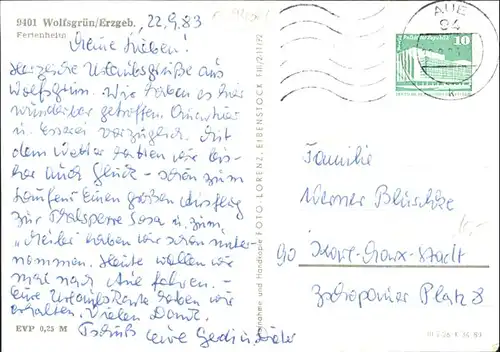 9401 Wolfsgrün/Erzgeb.
Ferienheim
22.9.83
Meine Lieben!
Herzliche Urlaubsgrüße aus
Wolfsgrün. Wir haben es hier
wunderbar getroffen. Quartier
u. Essen vorzüglich. Mit
dem Wetter hatten wir bis-
her auch Glück – schön zum
Laufen. Einen großen Ausflug
zur Talsperre Sosa u. zum
"Meiler" haben wir schon unter-
nommen. Heute wollen wir
mal nach Aue fahren. –
Eine Urlaubskarte haben wir
erhalten. Vielen Dank.
Tschüß eure Gerdi u.
EVP 0,25 M
Aufnahme und Handabzüge FOTO LORENZ, EIBENSTOCK
AUE
94
10
Familie
Werner
90 Karl-Marx-Stadt
Zschopauer Platz 8